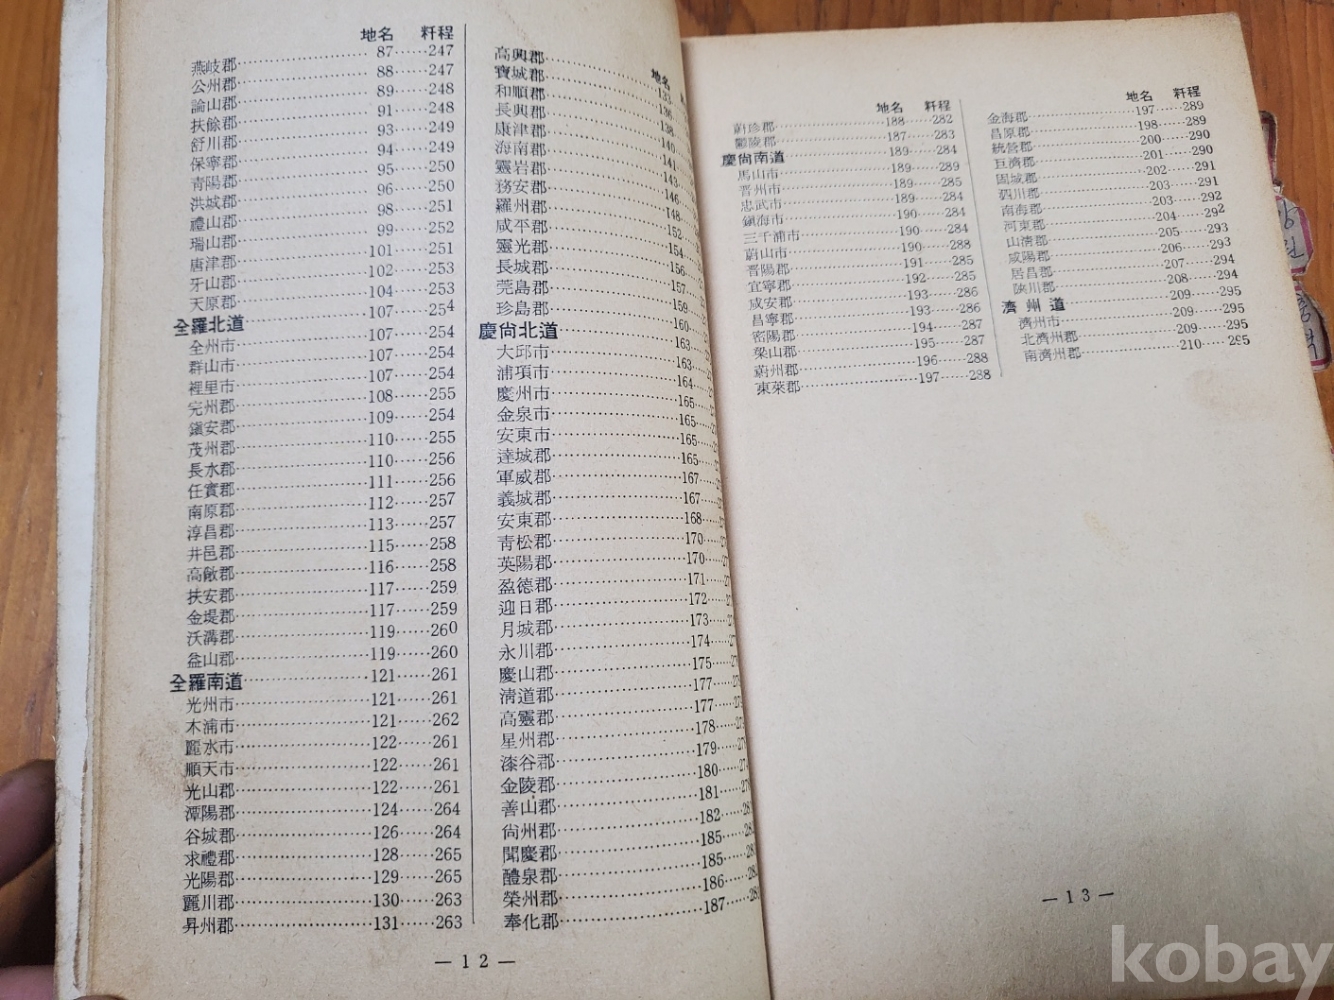 地名 粁程
燕岐郡 87 247
公州郡 88 247
論山郡 89 248
扶餘郡 91 248
舒川郡 93 249
保寧郡 94 249
靑陽郡 95 250
洪城郡 96 250
禮山郡 98 251
瑞山郡 99 252
唐津郡 101 251
牙山郡 102 253
天原郡 104 253
全羅北道 107 254
全州市 107 254
群山市 107 254
裡里市 107 254
完州郡 108 255
鎭安郡 109 254
茂州郡 110 255
長水郡 110 256
任實郡 111 256
南原郡 112 257
淳昌郡 113 257
井邑郡 115 258
高敞郡 116 258
扶安郡 117 259
金堤郡 117 259
沃溝郡 119 260
益山郡 119 260
全羅南道 121 261
光州市 121 261
木浦市 121 262
麗水市 122 261
順天市 122 261
光山郡 122 261
潭陽郡 124 264
谷城郡 126 264
求禮郡 128 265
光陽郡 129 265
麗川郡 130 263
昇州郡 131 263
地名
高興郡 133
寶城郡 136
和順郡 138
長興郡 140
康津郡 141
海南郡 143
靈岩郡 146
務安郡 148
羅州郡 152
咸平郡 154
靈光郡 156
長城郡 157
莞島郡 159
珍島郡 160
慶尙北道 163
大邱市 163
浦項市 164
慶州市 165
金泉市 165
安東市 165
達城郡 165
軍威郡 167
義城郡 167
安東郡 168
靑松郡 170
英陽郡 170
盈德郡 171
迎日郡 172
月城郡 173
永川郡 174
慶山郡 175
淸道郡 177
高靈郡 177
星州郡 178
漆谷郡 179
金陵郡 180
善山郡 181
尙州郡 182
聞慶郡 185
醴泉郡 185
榮州郡 186
奉化郡 187
— 12 —
地名 粁程
蔚珍郡 188 282
鬱陵郡 187 283
慶尙南道 189 284
馬山市 189 289
晋州市 189 285
忠武市 189 284
鎭海市 190 284
三千浦市 190 284
蔚山市 190 288
晋陽郡 191 285
宜寧郡 192 285
咸安郡 193 286
昌寧郡 193 286
密陽郡 194 287
梁山郡 195 287
蔚州郡 196 288
東萊郡 197 288
地名 粁程
金海郡 197 289
昌原郡 198 289
統營郡 200 290
巨濟郡 201 290
固城郡 202 291
泗川郡 203 291
南海郡 203 292
河東郡 204 292
山淸郡 205 293
咸陽郡 206 293
居昌郡 207 294
陜川郡 208 294
濟州道 209 295
濟州市 209 295
北濟州郡 209 295
南濟州郡 210 295
— 13 —
kobay